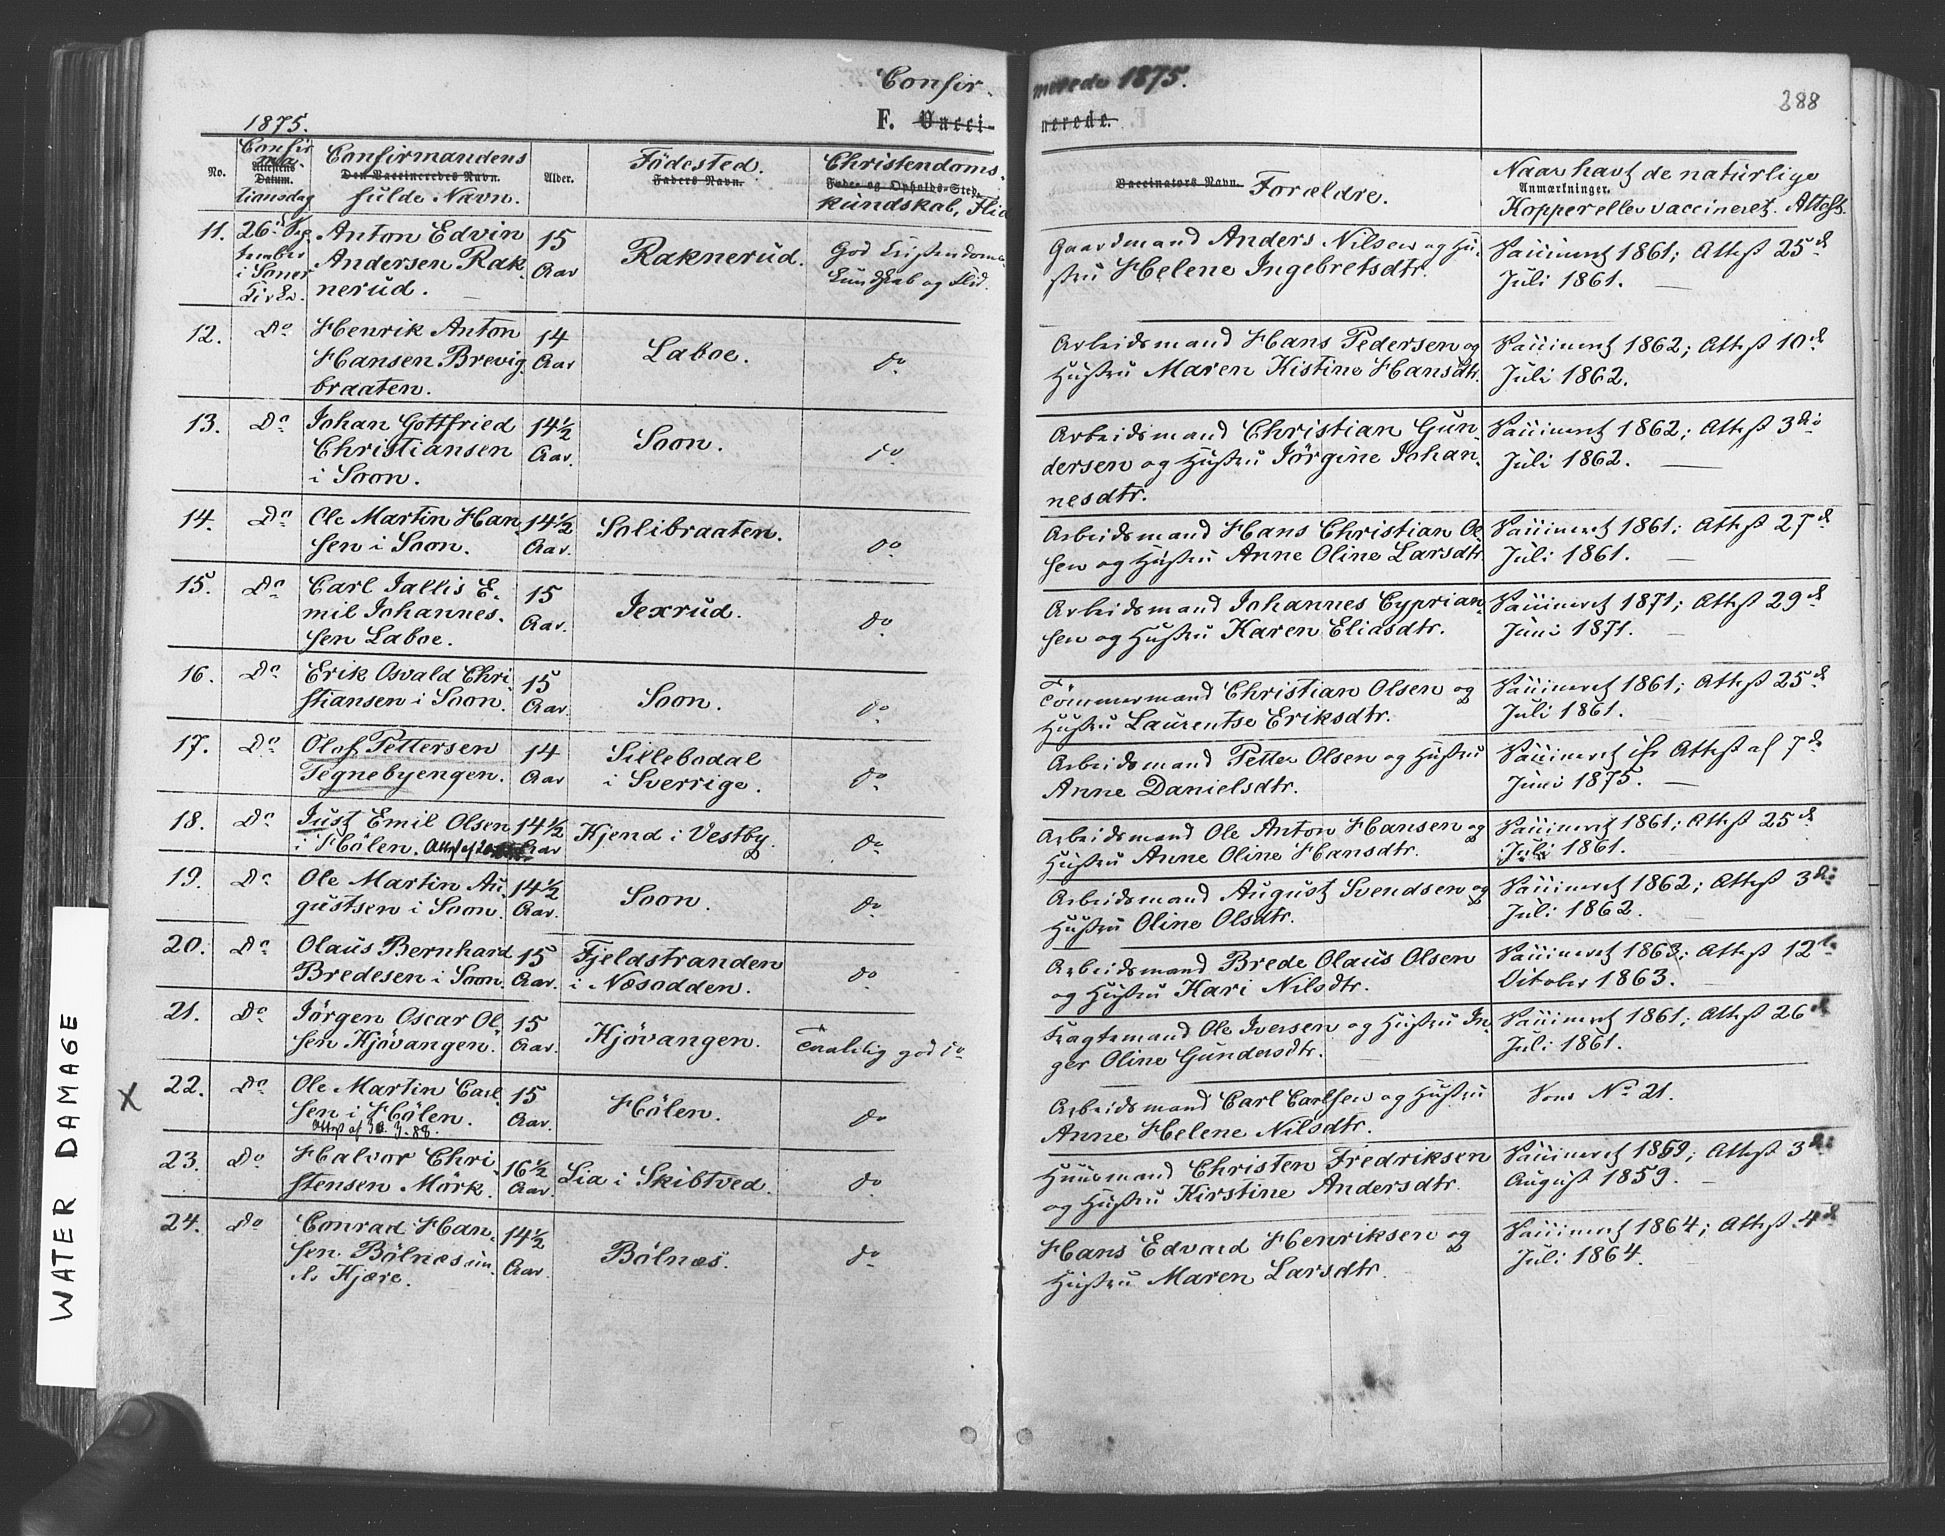 Confir-
merede 1875.
288
1875.
F. Vacci-
nerede.
No.
Confirma-
Attestens
Datum.
tionsdag
Confirmandens
Den Vaccineredes Navn.
fulde Navn.
Alder.
Fødested.
Faders Navn.
Christendoms-
Føde- og Opholds-Sted.
kundskab, Flid
Vaccinators Navn. Forældre.
Naar havt de naturlige
Anmærkninger.
Kopper eller vaccineret. Attest.
11.
26de Sep-
tember
i Soner
Kirke.
Anton Edvin
Andersen Rak-
nerud.
15
Aar
Raknerud.
God Christendoms-
kundskab og Flid.
Gaardmand Anders Nilsen og Hu-
stru Helene Ingebretsdtr.
Vaccineret 1861; Attest 25de
Juli 1861.
12.
Do
Henrik Anton
Hansen Brevig-
braaten.
14
Aar
Laboe.
do
Arbeidsmand Hans Pedersen og
Hustru Maren Kistine Hansdtr.
Vaccineret 1862; Attest 10de
Juli 1862.
13.
Do
Johan Gottfried
Christiansen
i Soon.
14½
Aar.
Soon.
do
Arbeidsmand Christian Gun-
dersen og Hustru Jørgine Johan-
nesdtr.
Vaccineret 1862; Attest 3die
Juli 1862.
14.
Do
Ole Martin Han-
sen i Soon.
14½
Aar.
Solibraaten.
do
Arbeidsmand Hans Christian Ol-
sen og Hustru Anne Oline Larsdtr.
Vaccineret 1861; Attest 27de
Juli 1861.
15.
Do
Carl Jallis E-
mil Johannes-
sen Laboe.
15
Aar.
Jexrud.
do
Arbeidsmand Johannes Cyprian-
sen og Hustru Karen Eliasdtr.
Vaccineret 1871; Attest 29de
Juni 1871.
16.
Do
Erik Osvald Chri-
stiansen i Soon.
15
Aar.
Soon.
do
Tømmermand Christian Olsen og
Hustru Laurentse Eriksdtr.
Vaccineret 1861; Attest 25de
Juli 1861.
17.
Do
Olof Pettersen
Tegnebyengen.
14
Aar
Sillebodal
i Sverrige.
do
Arbeidsmand Petter Olsen og Hustru
Anne Danielsdtr.
Vaccineret ifr Attest af 7de
Juni 1875.
18.
Do
Just Emil Olsen
i Hølen. Attest af
14½
Aar
Kjend i Vestby.
do
Arbeidsmand Ole Anton Hansen og
Hustru Anne Oline Hansdtr.
Vaccineret 1861; Attest 25de
Juli 1861.
19.
Do
Ole Martin Au-
gustsen i Soon.
14½
Aar.
Soon.
do
Arbeidsmand August Svendsen og
Hustru Oline Olsdtr.
Vaccineret 1862; Attest 3die
Juli 1862.
20.
Do
Olaus Bernhard
Bredesen i Soon.
15
Aar.
Fjeldstranden
i Næsodden.
do
Arbeidsmand Brede Olaus Olsen
og Hustru Kari Nilsdtr.
Vaccineret 1863; Attest 12te
October 1863.
21.
Do
Jørgen Oscar Ol-
sen Kjøvangen.
15
Aar.
Kjøvangen.
Taalelig god do
Fragtemand Ole Iversen og Hustru In-
ger Oline Gundersdtr.
Vaccineret 1861; Attest 26de
Juli 1861.
X
22.
Do
Ole Martin Carl-
sen i Hølen.
Attest af 30.3.88.
15
Aar.
Hølen.
do
Arbeidsmand Carl Carlsen og Hustru
Anne Helene Nilsdtr.
Som No 21.
23.
Do
Halvor Chri-
stensen Mørk.
16½
Aar.
Lia i Skibtved.
do
Huusmand Christen Fredriksen
og Hustru Kirstine Andersdtr.
Vaccineret 1859; Attest 3die
August 1859.
24.
Do
Conrad Han-
sen Bølnæs un-
der Kjære.
14½
Aar.
Bølnæs.
do
Hans Edvard Henriksen og
Hustru Maren Larsdtr.
Vaccineret 1864; Attest 4de
Juli 1864.
WATER DAMAGE